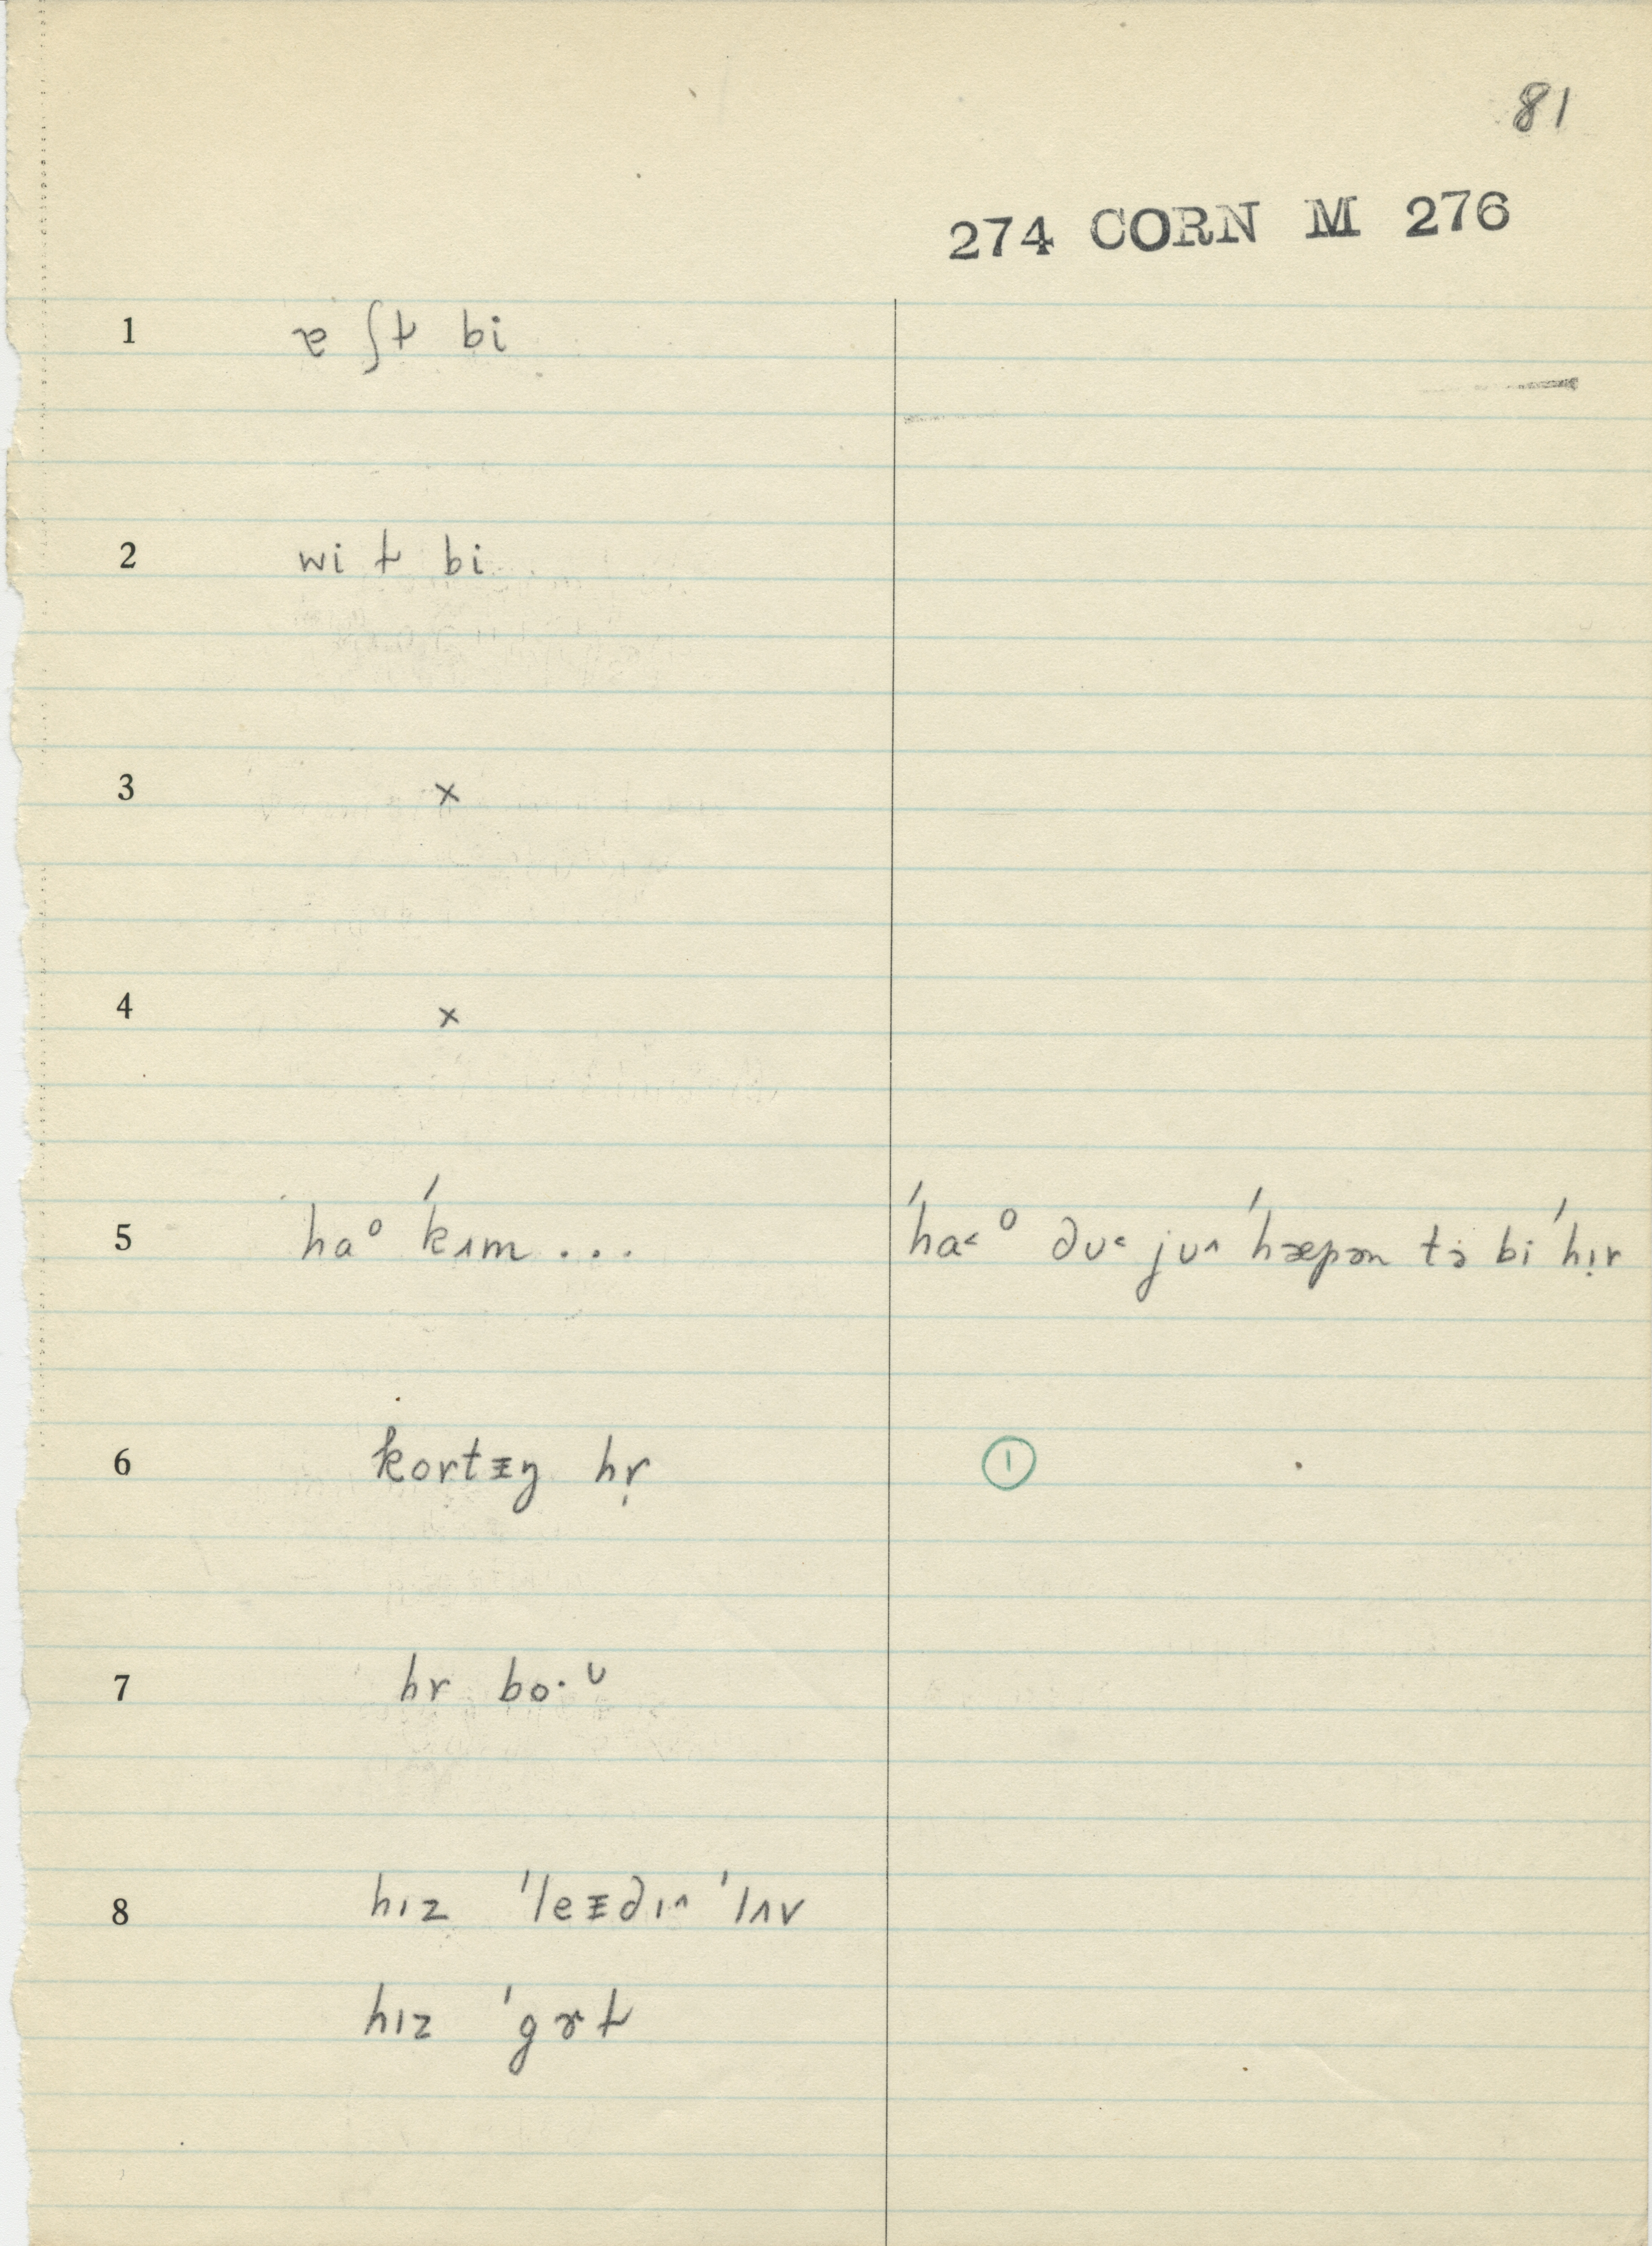 81
274 CORN M 276
1 ɐ ʃɫ bi
2 wi ɫ bi
3 ×
4 ×
5 haᵒ ˈkɪm ... ˈha˂ᵒ ∂ʊ˂ jʊ^ ˈhæpən tə bi ˈhɪ̣r
6 kortɪŋ hṛ ①
7 hr bo·ᶷ
8 hɪz ˈleɪ∂ɪ^ ˈlʌv
hɪz ˈgɝɫ